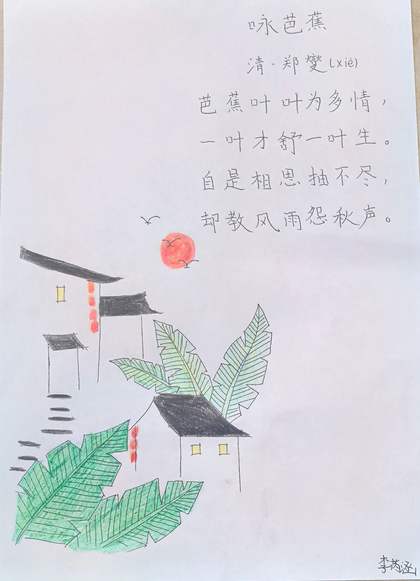 咏芭蕉
清·郑燮(xiè)
芭蕉叶叶为多情，
一叶才舒一叶生。
自是相思抽不尽，
却教风雨怨秋声。
李芮涵